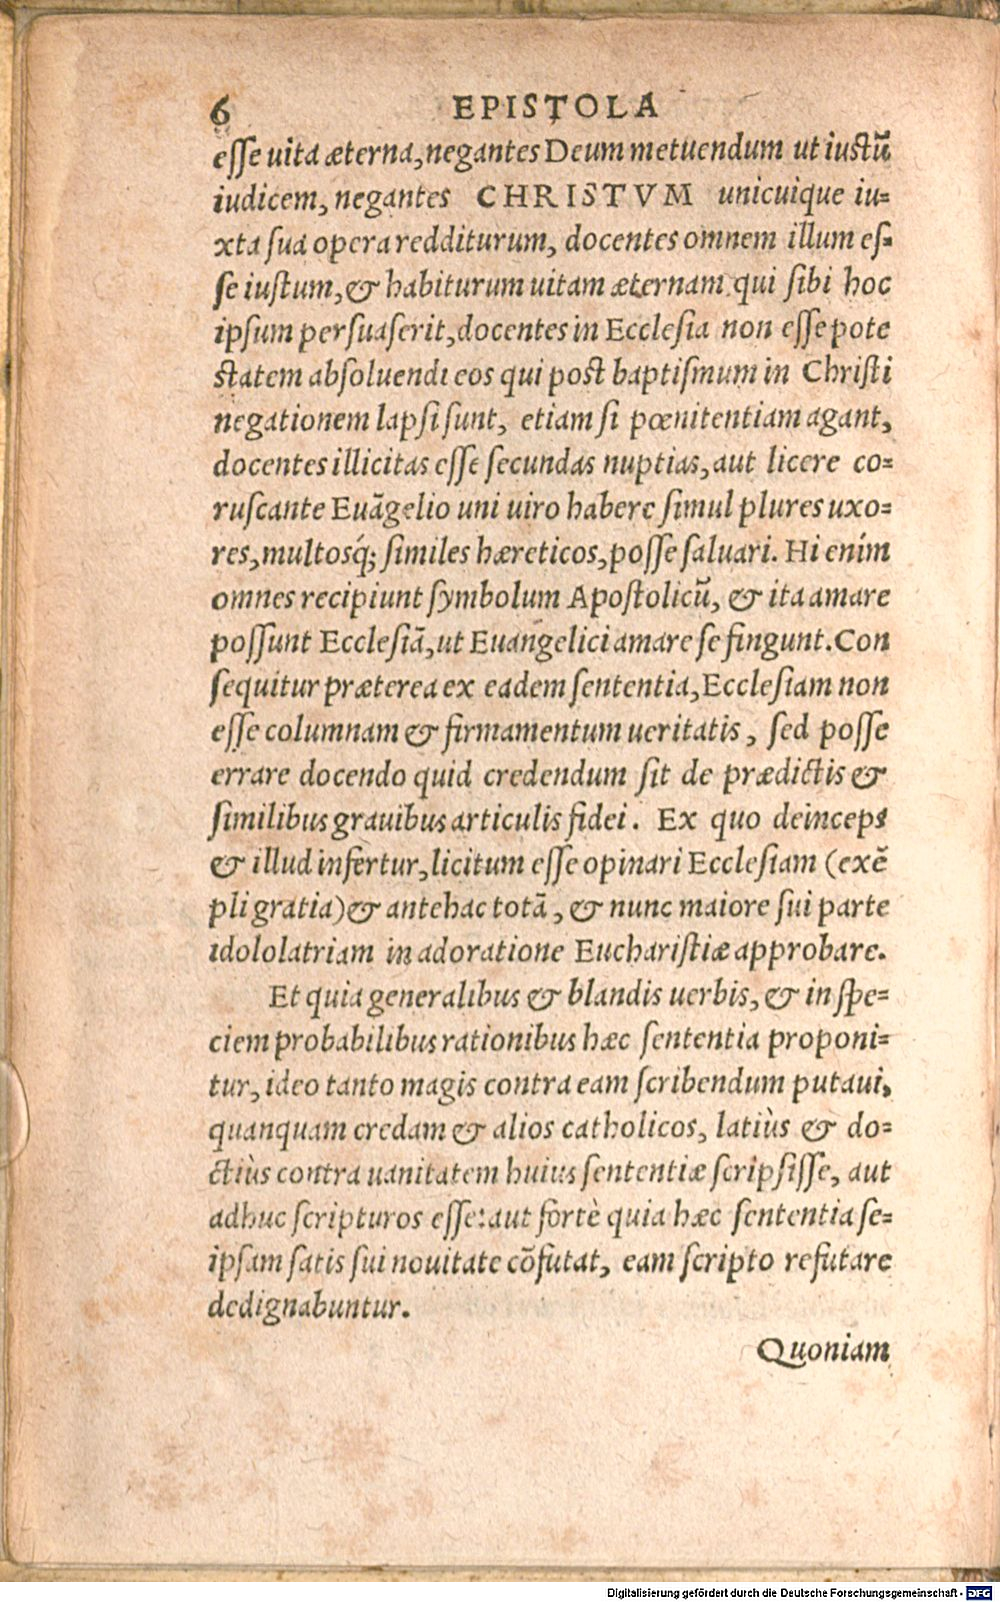 6 EPISTOLA
esse uita æterna, negantes Deum metuendum ut iustũ
iudicem, negantes CHRISTVM unicuique iu=
xta sua opera redditurum, docentes omnem illum es=
se iustum, & habiturum uitam æternam qui sibi hoc
ipsum persuaserit, docentes in Ecclesia non esse pote
statem absoluendi eos qui post baptismum in Christi
negationem lapsi sunt, etiam si pœnitentiam agant,
docentes illicitas esse secundas nuptias, aut licere co=
ruscante Euãgelio uni uiro habere simul plures uxo=
res, multosq́; similes hæreticos, posse saluari. Hi enim
omnes recipiunt symbolum Apostolicũ, & ita amare
possunt Ecclesiã, ut Euangelici amare se fingunt. Con
sequitur præterea ex eadem sententia, Ecclesiam non
esse columnam & firmamentum ueritatis, sed posse
errare docendo quid credendum sit de prædictis &
similibus grauibus articulis fidei. Ex quo deinceps
& illud infertur, licitum esse opinari Ecclesiam (exẽ
pli gratia) & antehac totã, & nunc maiore sui parte
idololatriam in adoratione Eucharistiæ approbare.
Et quia generalibus & blandis uerbis, & in spe=
ciem probabilibus rationibus hæc sententia proponi=
tur, ideo tanto magis contra eam scribendum putaui,
quanquam credam & alios catholicos, latiùs & do=
ctiùs contra uanitatem huius sententiæ scripsisse, aut
adhuc scripturos esse: aut fortè quia hæc sententia se=
ipsam satis sui nouitate cõfutat, eam scripto refutare
dedignabuntur.
Quoniam
Digitalisierung gefördert durch die Deutsche Forschungsgemeinschaft - DFG